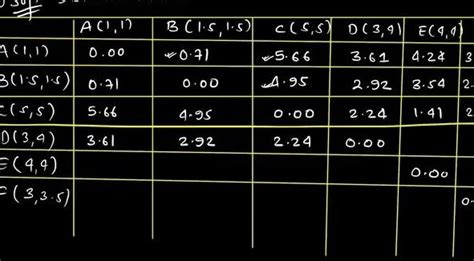 A(1,1) B(1.5,1.5) C(5,5) D(3,4) E(4,4)
A(1,1) 0.00 0.71 5.66 3.61 4.24 3
B(1.5,1.5) 0.71 0.00 4.95 2.92 3.54 2.
C(5,5) 5.66 4.95 0.00 2.24 1.41 2
D(3,4) 3.61 2.92 2.24 0.00
E(4,4) 0.00
F(3,3.5) 0.